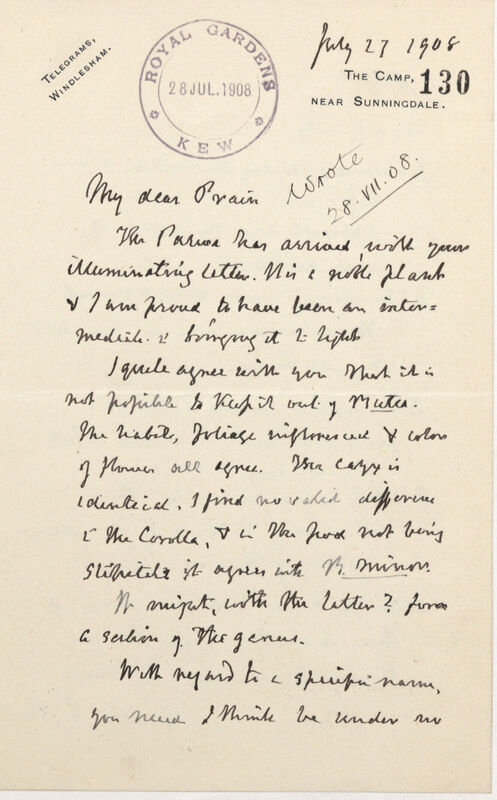 TELEGRAMS,
WINDLESHAM.
ROYAL GARDENS
28 JUL. 1908
KEW
July 27 1908
THE CAMP, 130
NEAR SUNNINGDALE.
Wrote
28. VII. 08.
My dear Prain
The has arrived, with your
illuminating letter. It is a noble plant
& I am proud to have been an inter=
mediate in bringing it to light
I quite agree with you that it is
not possible to keep it out of Butea.
The habit, foliage inflorescence & color
of flower all agree. The calyx is
identical. I find no valid difference
in the Corolla, & in the pod not being
stipitate it agrees with B. minor.
It might, with the latter? form
a section of the genus.
With regard to a specific name,
you need I think be under no